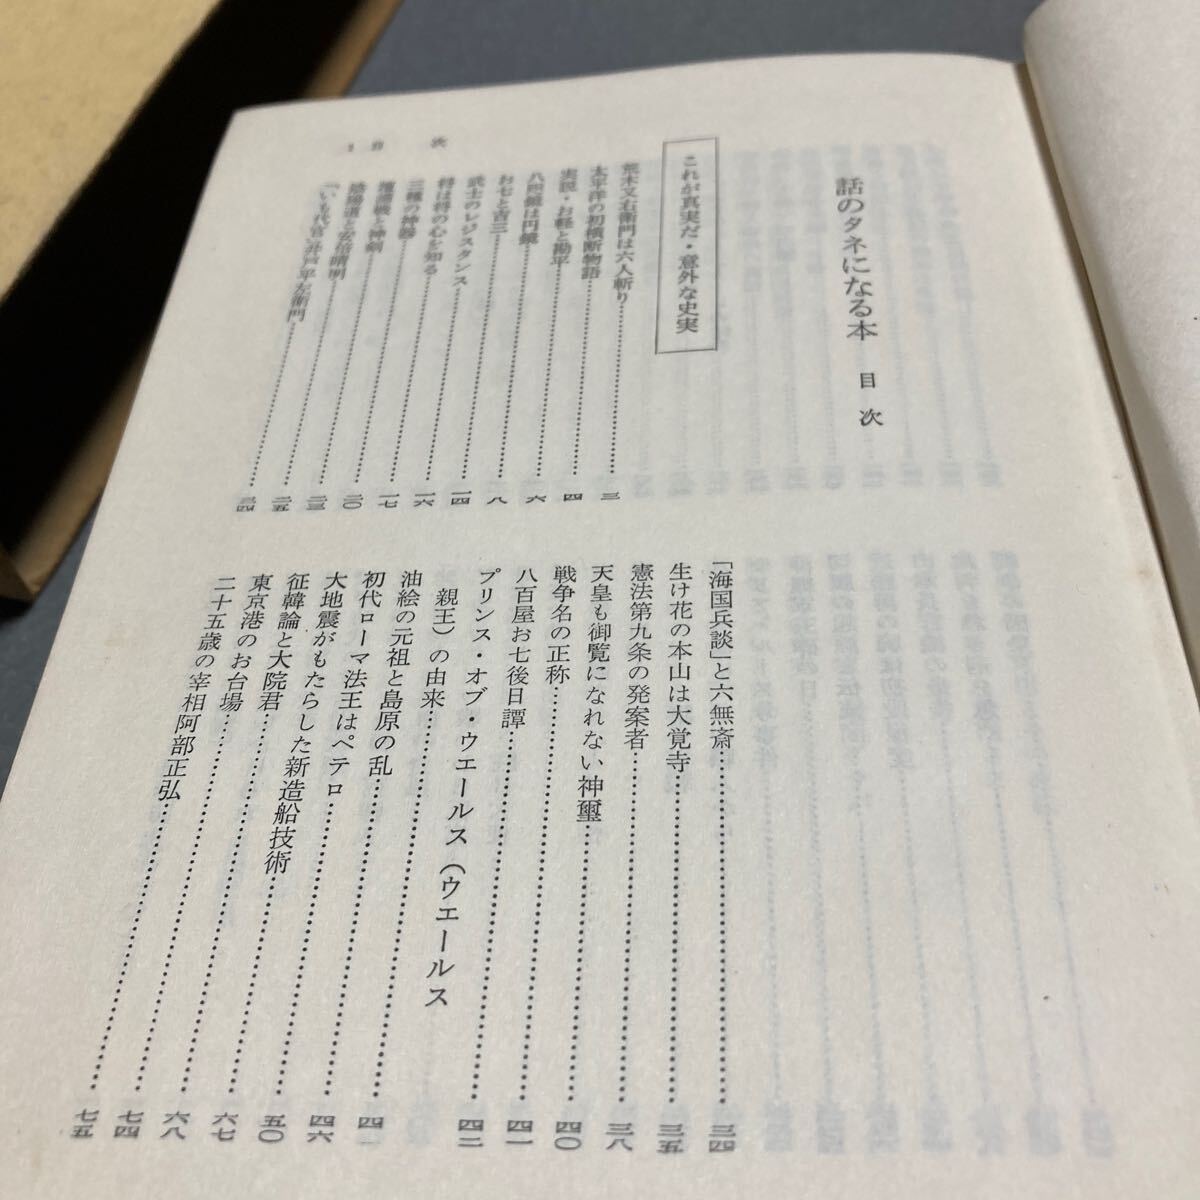 1 目 次
話のタネになる本 目 次
これが真実だ・意外な史実
荒木又右衛門は六人斬り……三
太平洋の初横断物語……四
実説・お軽と勘平……六
八咫鏡は円鏡……八
お七と吉三……一四
武士のレジスタンス……一六
将は将の心を知る……一七
三種の神器……二〇
壇浦戦と神剣……二三
陰陽道と安倍晴明……二五
「いも代官」井戸平左衛門……
「海国兵談」と六無斎……三四
生け花の本山は大覚寺……三五
憲法第九条の発案者……三八
天皇も御覧になれない神璽……四〇
戦争名の正称……四一
八百屋お七後日譚……四二
プリンス・オブ・ウエールス(ウエールス
親王)の由来……
油絵の元祖と島原の乱……四六
初代ローマ法王はペテロ……五〇
大地震がもたらした新造船技術……六七
征韓論と大院君……六八
東京港のお台場……七四
二十五歳の宰相阿部正弘……七五